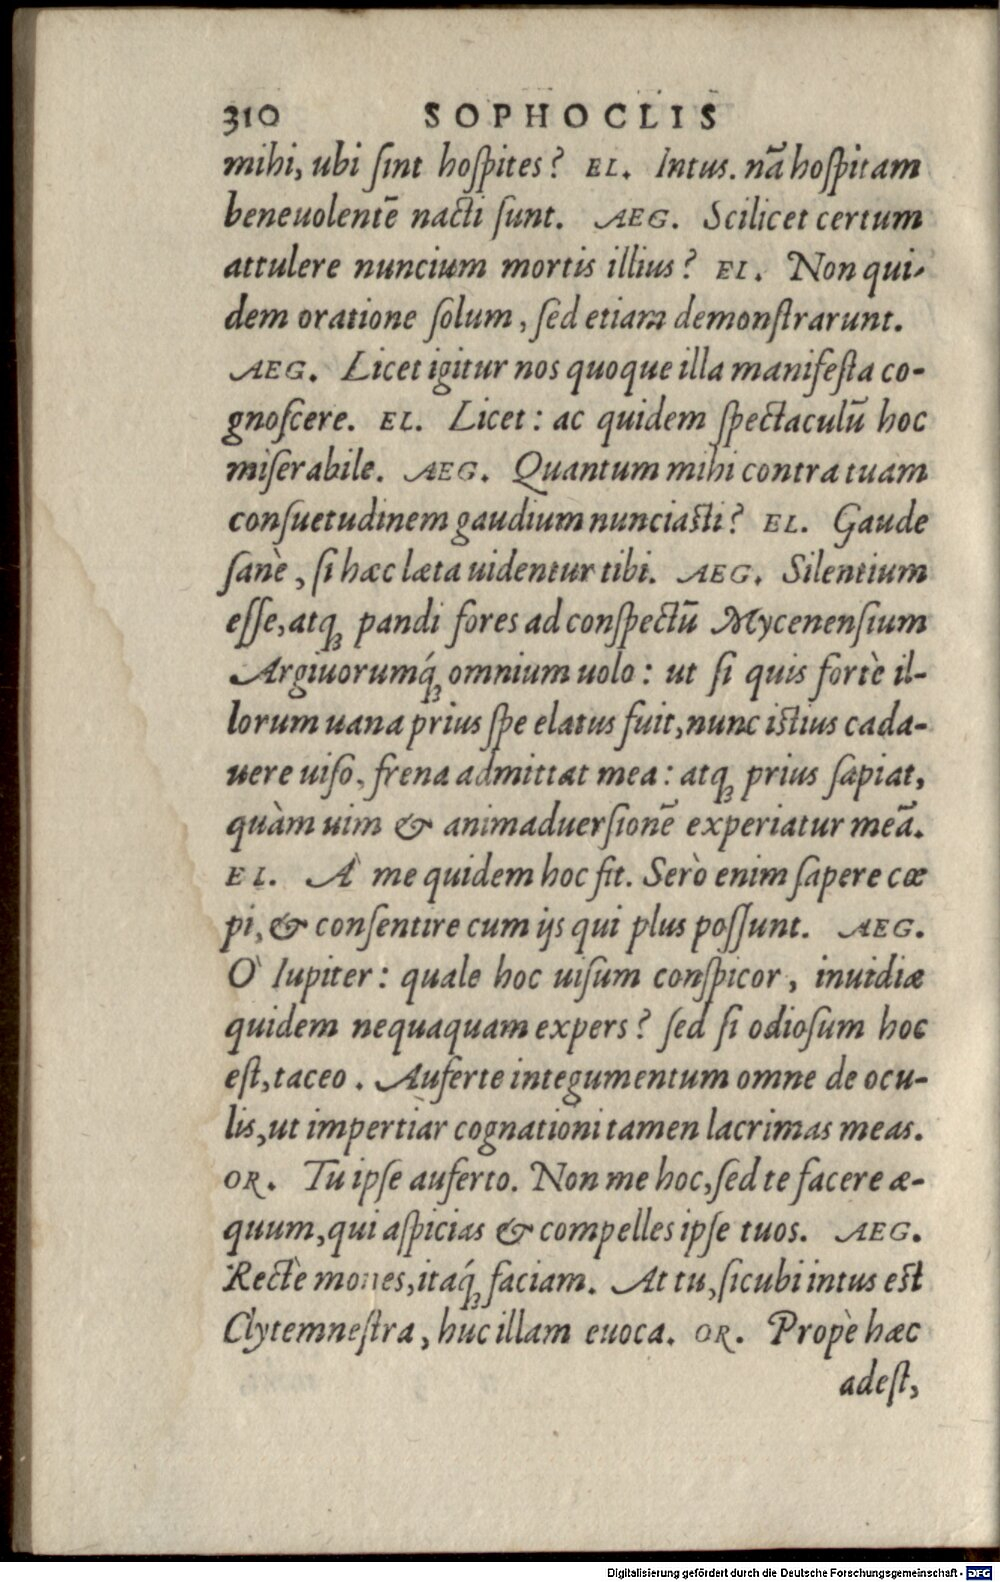 310 SOPHOCLIS
mihi, ubi ſint hoſpites? EL. Intus. nã hoſpitam
beneuolentẽ nacti ſunt. AEG. Scilicet certum
attulere nuncium mortis illius? EL. Non qui-
dem oratione ſolum, ſed etiam demonſtrarunt.
AEG. Licet igitur nos quoque illa manifeſta co-
gnoſcere. EL. Licet: ac quidem ſpectaculũ hoc
miſerabile. AEG. Quantum mihi contra tuam
conſuetudinem gaudium nunciasti? EL. Gaude
ſanè, ſi hæc læta uidentur tibi. AEG. Silentium
eſſe, atq; pandi fores ad conſpectũ Mycenenſium
Argiuorumq́; omnium uolo: ut ſi quis fortè il-
lorum uana prius ſpe elatus fuit, nunc istius cada-
uere uiſo, frena admittat mea: atq; prius ſapiat,
quàm uim & animaduerſionẽ experiatur meã.
EL. À me quidem hoc fit. Serò enim ſapere cœ
pi, & conſentire cum ijs qui plus poſſunt. AEG.
Ò Iupiter: quale hoc uiſum conſpicor, inuidiæ
quidem nequaquam expers? ſed ſi odioſum hoc
eſt, taceo. Auferte integumentum omne de ocu-
lis, ut impertiàr cognationi tamen lacrimas meas.
OR. Tu ipſe auferto. Non me hoc, ſed te facere æ-
quum, qui aſpicias & compelles ipſe tuos. AEG.
Rectè mones, itaq́; faciam. At tu, ſicubi intus est
Clytemneſtra, huc illam euoca. OR. Propè hæc
adeſt,
Digitalisierung gefördert durch die Deutsche Forschungsgemeinschaft - DFG